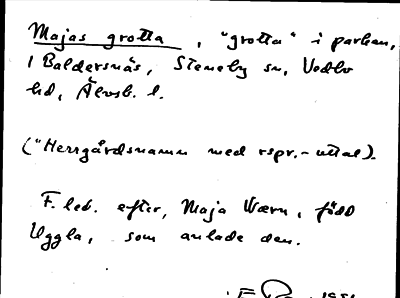 Majas grotta, "grotta" i parken,
i Baldersnäs, Steneby sn, Vedbo
hd, Älvsb. l.
("Herrgårdsnamn med rspr.-uttal).
F. led. efter, Maja Wærn, född
Uggla, som anlade den.